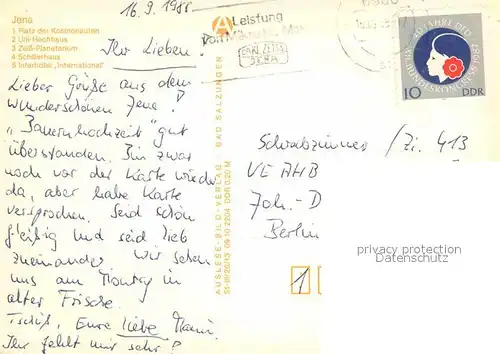 Jena
1 Platz der Kosmonauten
2 Uni-Hochhaus
3 Zeiß-Planetarium
4 Schillerhaus
5 Interhotel „International"
16.9.1988
Ihr Lieben!
Lieber Grüße aus dem
wunderschönen Jena!
„Bauernhochzeit" gut
überstanden. Bin zwar
noch vor der Karte wieder
da, aber habe Karte
versprochen. Seid schön
fleißig und seid lieb
zueinander. Wir sehen
uns am Montag in
alter Frische.
Tschüß, Eure liebe Mami.
Ihr fehlt mir sehr!
AUSLESE-BILD-VERLAG BAD SALZUNGEN
09 10 2204 DDR 0,20 M
Leistung
CARL ZEISS
JENA
40 JAHRE DFD
1987
BUNDESKONGRESS
10 DDR
Schreibzimmer / Zi. 413
VE AHB
Joh.-D
Berlin
1
privacy protection
Datenschutz